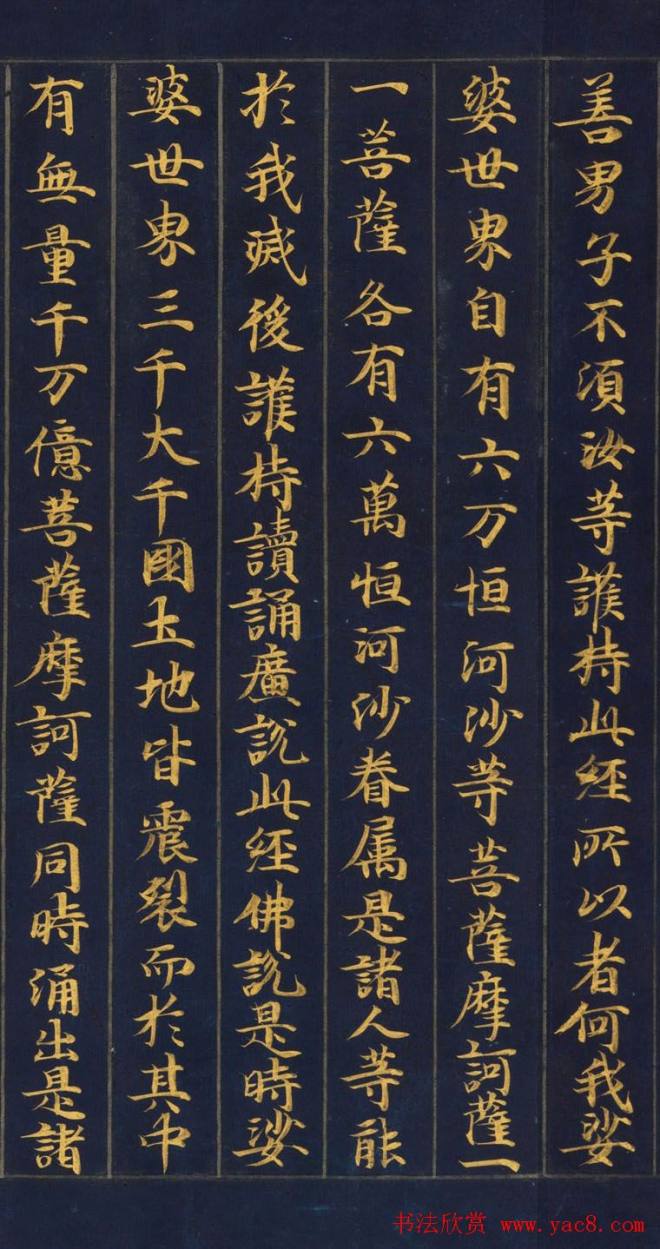 善男子不須汝等護持此経所以者何我娑
婆世界自有六万恒河沙等菩薩摩訶薩一
一菩薩各有六萬恒河沙眷属是諸人等能
於我滅後護持讀誦廣説此経佛説是時娑
婆世界三千大千國土地皆震裂而於其中
有無量千万億菩薩摩訶薩同時涌出是諸
书法欣赏 www.yac8.com